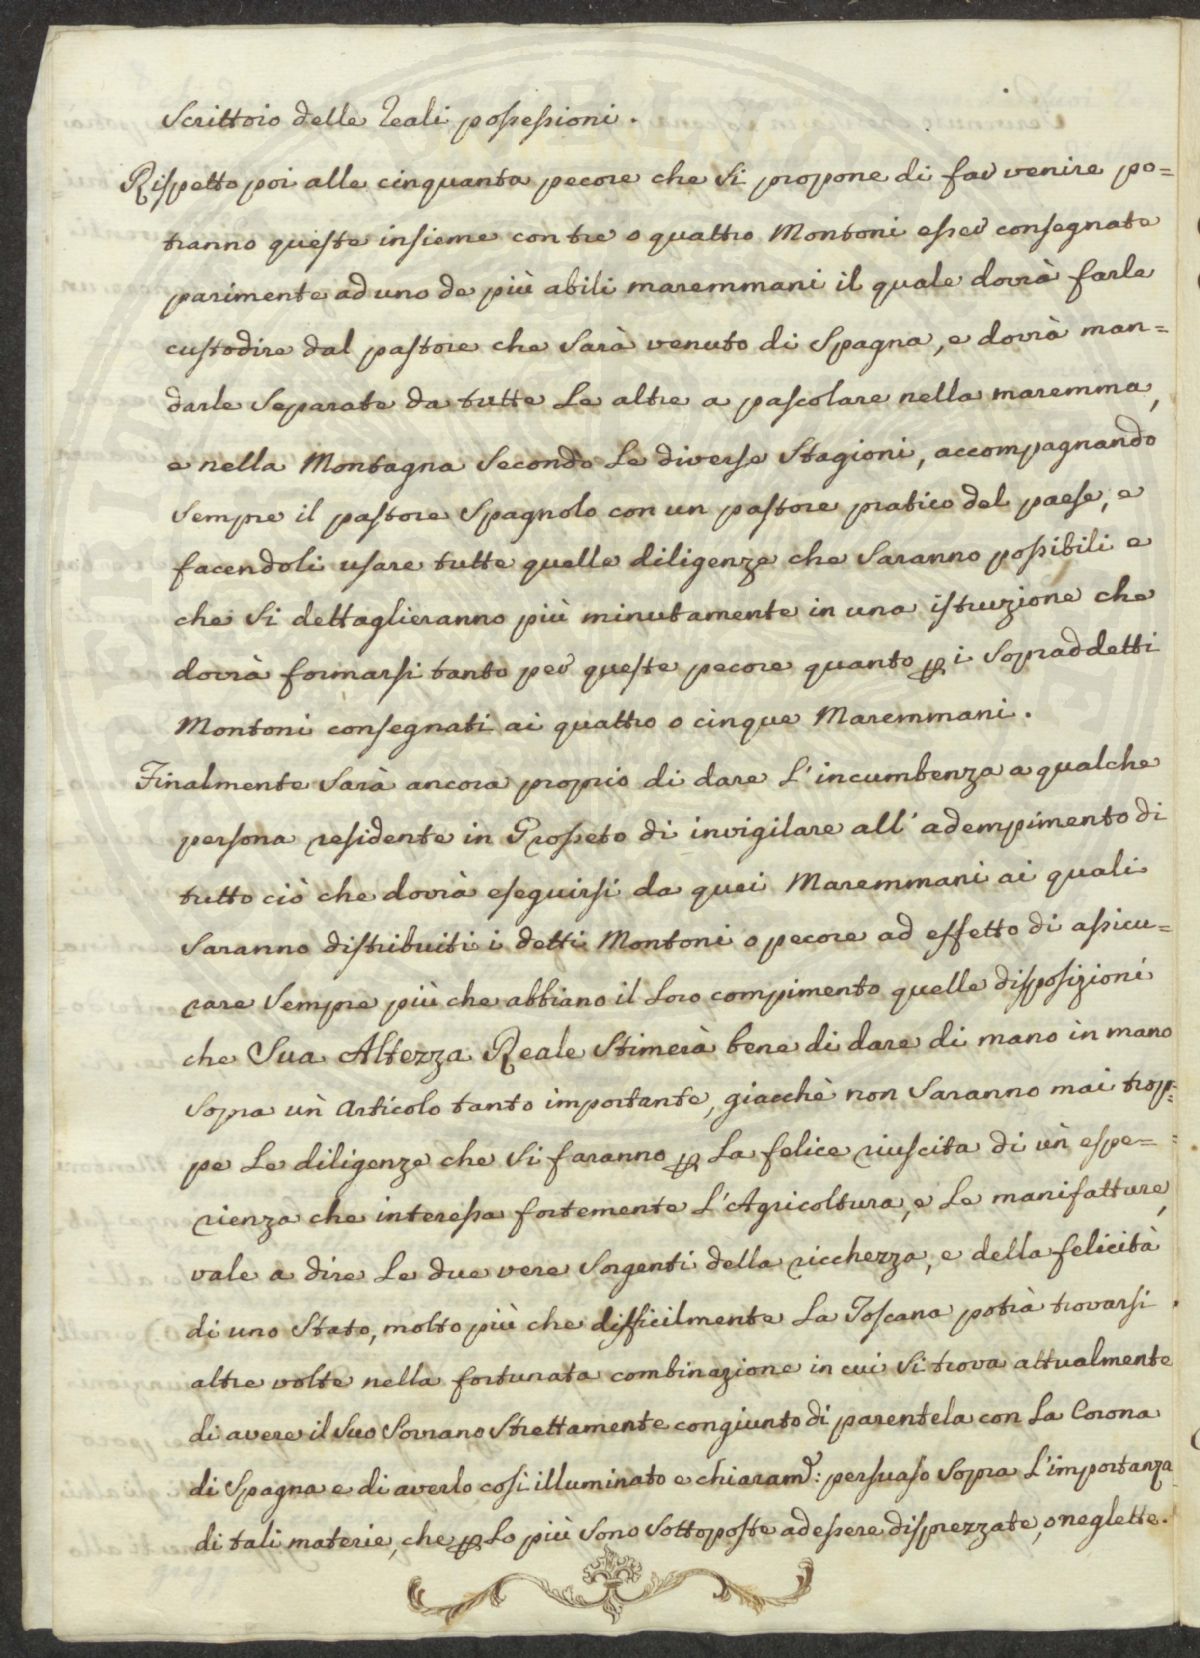 Scrittoio delle Reali possessioni.
Rispetto poi alle cinquanta pecore che si propone di far venire po=
tranno queste insieme con tre o quattro Montoni esser consegnate
parimente ad uno de più abili maremmani il quale dovrà farle
custodire dal pastore che sarà venuto di Spagna, e dovrà man=
darle separate da tutte le altre a pascolare nella maremma,
e nella Montagna secondo le diverse stagioni, accompagnando
sempre il pastore Spagnolo con un pastore pratico del paese, e
facendoli usare tutte quelle diligenze che saranno possibili e
che si dettaglieranno più minutamente in una istruzione che
dovrà formarsi tanto per queste pecore quanto p i sopraddetti
Montoni consegnati ai quattro o cinque Maremmani.
Finalmente sarà ancora proprio di dare l'incumbenza a qualche
persona residente in Grosseto di invigilare all'adempimento di
tutto ciò che dovrà eseguirsi da quei Maremmani ai quali
saranno distribuiti i detti Montoni o pecore ad effetto di assicu=
rare sempre più che abbiano il loro compimento quelle disposizioni
che Sua Altezza Reale stimerà bene di dare di mano in mano
sopra un articolo tanto importante, giacchè non saranno mai trop=
pe le diligenze che si faranno p la felice riuscita di un espe=
rienza che interessa fortemente l'Agricoltura, e le manifatture,
vale a dire le due vere sorgenti della ricchezza, e della felicità
di uno Stato, molto più che difficilmente la Toscana potrà trovarsi
altre volte nella fortunata combinazione in cui si trova attualmente
di avere il suo Sovrano strettamente congiunto di parentela con la Corona
di Spagna e di averlo così illuminato e chiaram.e: persuaso sopra l'importanza
di tali materie, che p lo più sono sottoposte ad essere disprezzate, o neglette.